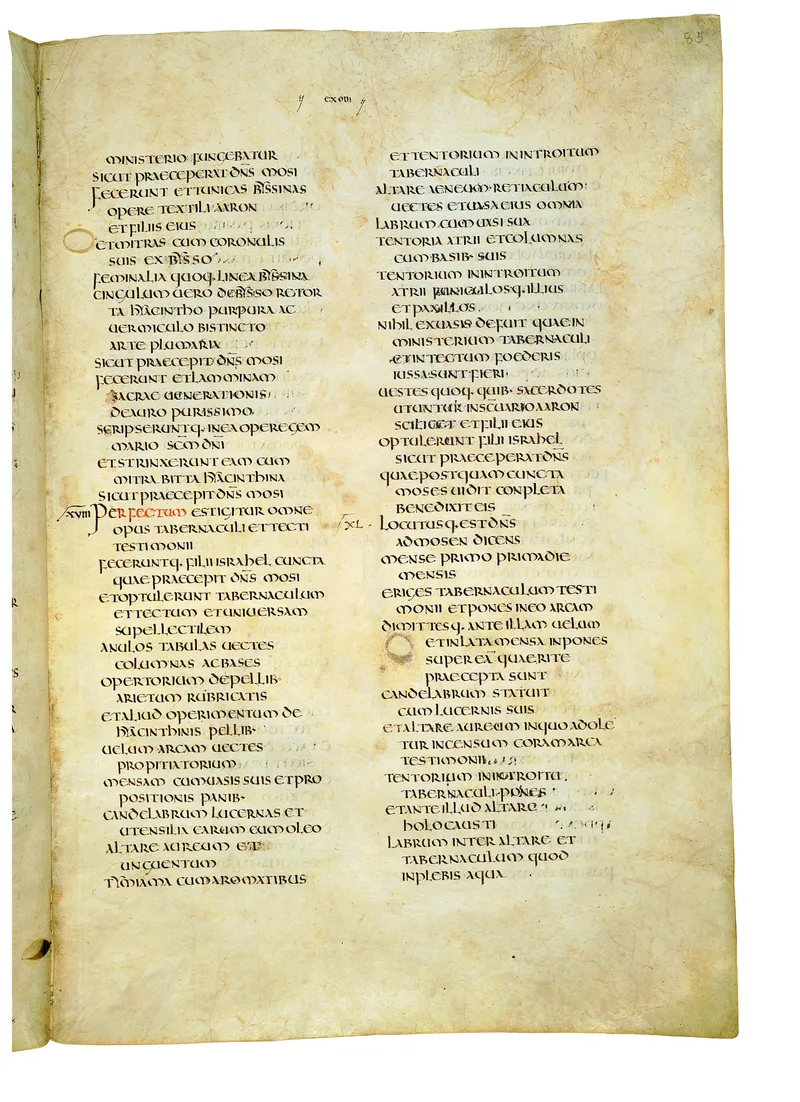 85
EXODI
MINISTERIO FUNGEBATUR
SICUT PRAECEPERAT DN̄S MOSI
FECERUNT ET TUNICAS BYSSINAS
OPERE TEXTILI AARON
ET FILIIS EIUS
ET MITRAS CUM CORONULIS
SUIS EX BYSSO
FEMINALIA QUOQ· LINEA BYSSINA
CINGULUM UERO DE BYSSO RETOR
TA HYACINTHO PURPURA AC
UERMICULO BISTINCTO
ARTE PLUMARIA
SICUT PRAECEPIT DN̄S MOSI
FECERUNT ET LAMMINAM
SACRAE UENERATIONIS
DE AURO PURISSIMO
SCRIPSERUNTQ· IN EA OPERE GEM
MARIO SC̄M DN̄I
ET STRINXERUNT EAM CUM
MITRA BITTA HYACINTHINA
SICUT PRAECEPIT DN̄S MOSI
XVIIII PERFECTUM EST IGITUR OMNE
OPUS TABERNACULI ET TECTI
TESTIMONII
FECERUNTQ· FILII ISRAHEL CUNCTA
QUAE PRAECEPIT DN̄S MOSI
ET OPTULERUNT TABERNACULUM
ET TECTUM ET UNIUERSAM
SUPELLECTILEM
ANULOS TABULAS UECTES
COLUMNAS AC BASES
OPERTORIUM DE PELLIB·
ARIETUM RUBRICATIS
ET ALIUD OPERIMENTUM DE
HYACINTHINIS PELLIB·
UELUM ARCAM UECTES
PROPITIATORIUM
MENSAM CUM UASIS SUIS ET PRO
POSITIONIS PANIB·
CANDELABRUM LUCERNAS ET
UTENSILIA EARUM CUM OLEO
ALTARE AUREUM ET
UNGUENTUM
THYMIAMA CUM AROMATIBUS
ET TENTORIUM IN INTROITUM
TABERNACULI
ALTARE AENEUM RETIACULUM
UECTES ET UASA EIUS OMNIA
LABRUM CUM BASI SUA
TENTORIA ATRII ET COLUMNAS
CUM BASIB· SUIS
TENTORIUM IN INTROITUM
ATRII FUNICULOSQ· ILLIUS
ET PAXILLOS
NIHIL EX UASIS DEFUIT QUAE IN
MINISTERIUM TABERNACULI
ET IN TECTUM FOEDERIS
IUSSA SUNT FIERI
UESTES QUOQ· QUIB· SACERDOTES
UTUNTUR IN SC̄UARIO AARON
SCILICET ET FILII EIUS
OPTULERUNT FILII ISRAHEL
SICUT PRAECEPERAT DN̄S
QUAE POSTQUAM CUNCTA
MOSES UIDIT CONPLETA
BENEDIXIT EIS
XL LOCUTUSQ· EST DN̄S
AD MOSEN DICENS
MENSE PRIMO PRIMA DIE
MENSIS
ERIGES TABERNACULUM TESTI
MONII ET PONES IN EO ARCAM
DIMITTESQ· ANTE ILLAM UELUM
ET INLATA MENSA INPONES
SUPER EĀ QUAE RITE
PRAECEPTA SUNT
CANDELABRUM STABIT
CUM LUCERNIS SUIS
ET ALTARE AUREUM IN QUO ADOLE
TUR INCENSUM CORAM ARCA
TESTIMONII
TENTORIUM IN INTROITU
TABERNACULI PONES
ET ANTE ILLUD ALTARE
HOLOCAUSTI
LABRUM INTER ALTARE ET
TABERNACULUM QUOD
INPLEBIS AQUA